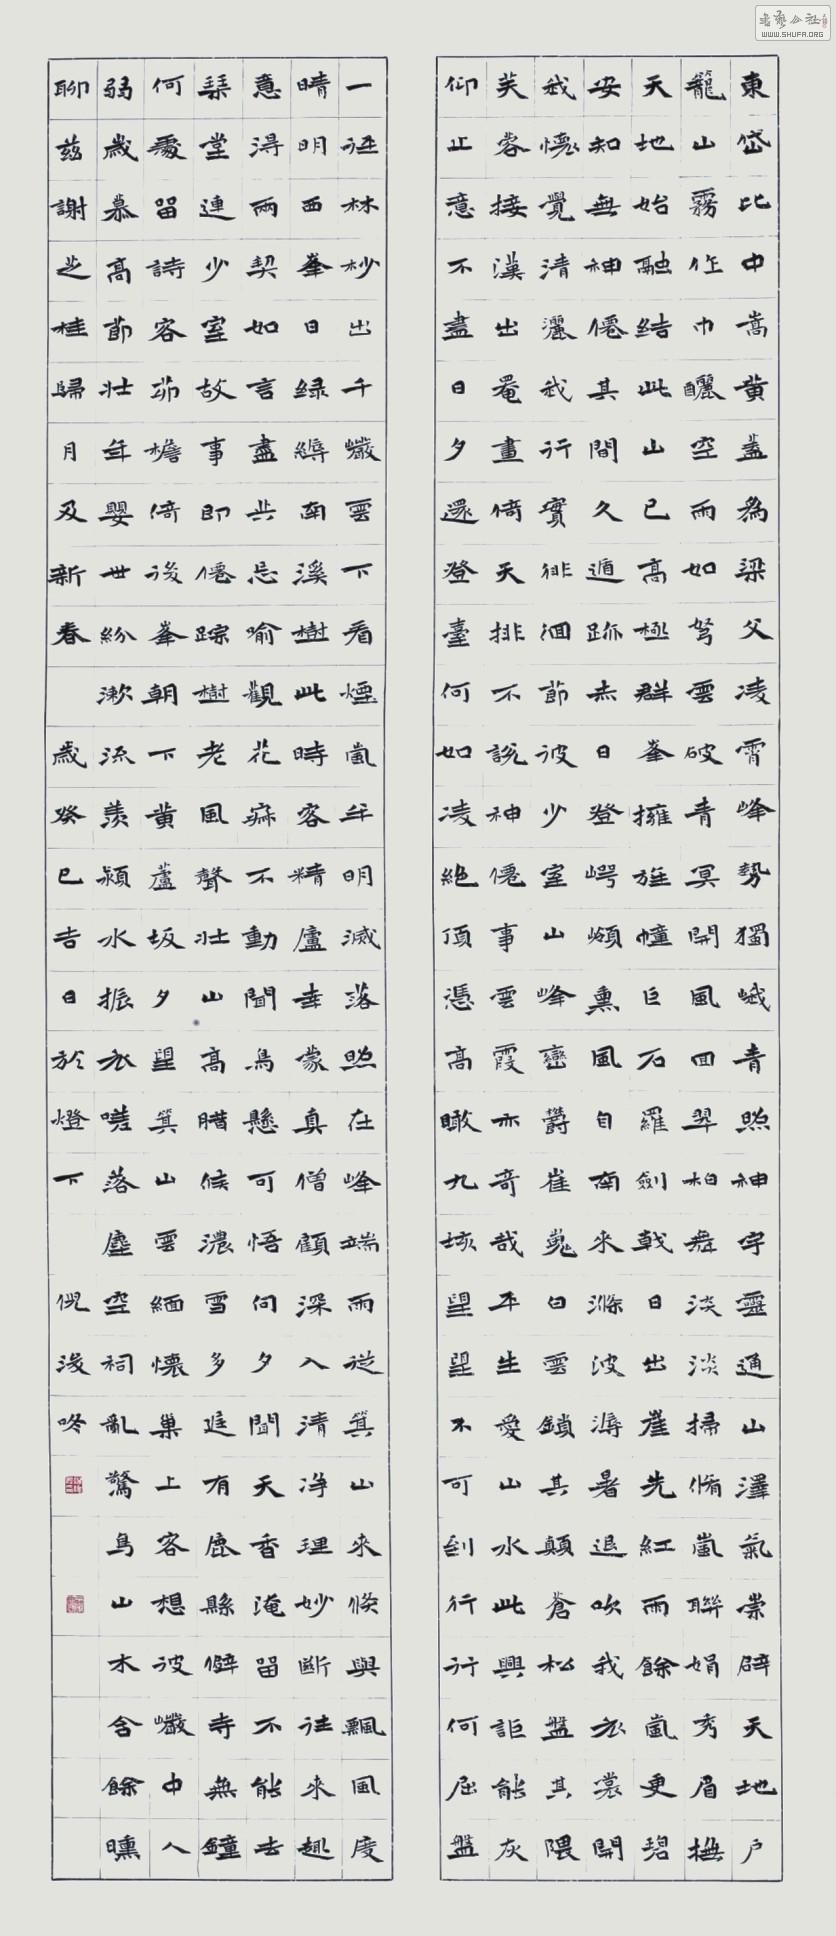 東岱比中嵩黄蓋為梁父凌霄峰勢獨峨青照神宇靈通山澤氣崇辟天地户
籠山霧作巾釃空而如弩雲破青冥開風回翠柏舞淡淡掃脩嵐聯娟秀眉撫
天地始融結此山已高極群峯擁旌幢巨石羅劍戟日出崖先紅雨餘嵐更碧
安知無神僊其間久遁跡赤日登崿嶺熏風自南來滌波溽暑退吹我衣裳開
我懷覺清灑我行實徘徊節彼少室山峰巒欝崔嵬白雲鎖其顛蒼松盤其隈
芙蓉接漢出罨畫倚天排不說神僊事雲霞亦奇哉平生愛山水此興詎能灰
仰止意不盡日夕還登臺何如凌絶頂憑高瞰九垓望望不可到行行何屈盤
一迳林杪出千巖雲下看煙嵐年明滅落照在峰端雨從箕山來倏與飄風度
晴明西峯日緑縟南溪樹此時客精廬幸蒙真僧顧深入清净理妙斷往來趣
意得兩契如言盡共忘喻觀花寂不動聞鳥懸可悟向夕聞天香淹留不能去
琹堂連少室故事即僊踪樹老風聲壯山高腊候濃雪多進有鹿縣僻寺無鐘
何處留詩客茆檐倚後峯朝下黄蘆坂夕望箕山雲緬懷巢上客想彼巖中人
弱歲慕高節壯年嬰世紛漱流羨潁水振衣嗟落塵空祠亂驚鳥山木含餘曛
聊兹謝芝桂歸月及新春 歲癸巳吉日於燈下 俔淩咚
書藝公社
WWW.SHUFA.ORG